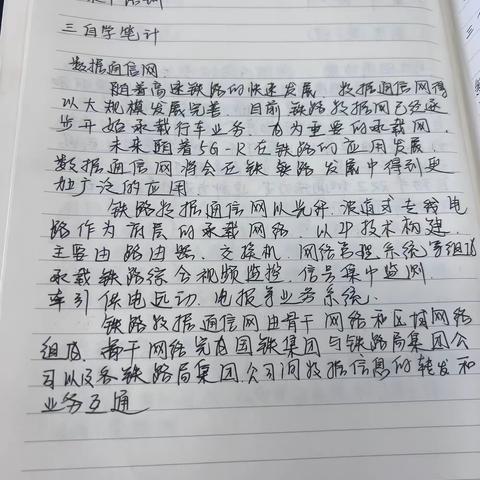 三自学笔计
数据通信网
随着高速铁路的快速发展,数据通信网得
以大规模发展完善,目前铁路数据网已经逐
步开始承载行车业务,成为重要的承载网,
未来随着5G-R在铁路的应用发展,
数据通信网将会在铁路发展中得到更
加广泛的应用
铁路数据通信网以光纤、波道或专线电
路作为底层的承载网络,以IP技术构建,
主要由路由器、交换机、网络管理系统等组成
承载铁路综合视频监控,信号集中监测
牵引供电远动,电报等业务系统.
铁路数据通信网由骨干网络和区域网络
组成、骨干网络完成国铁集团与铁路局集团公
司以及各铁路局集团公司间数据信息的转发和
业务互通